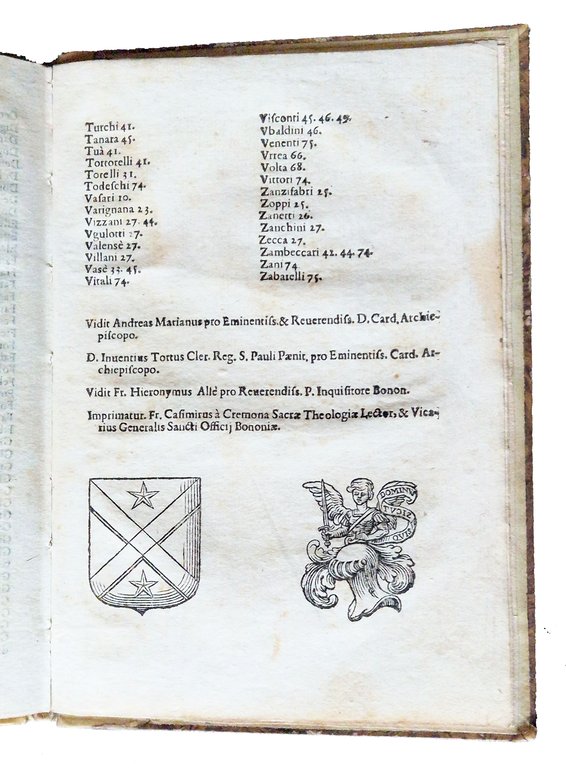 Turchi 41.
Tanara 45.
Tuà 41.
Tortorelli 41.
Torelli 31.
Todeschi 74.
Vasari 10.
Varignana 23.
Vizzani 27. 44.
Vgulotti 27.
Valensè 27.
Villani 27.
Vasè 33. 45.
Vitali 74.
Visconti 45. 46. 49.
Vbaldini 46.
Venenti 75.
Vrrea 66.
Volta 68.
Vittori 74.
Zanzifabri 25.
Zoppi 25.
Zanetti 26.
Zanchini 27.
Zecca 27.
Zambeccari 42. 44. 74.
Zani 74
Zabarelli 75.
Vidit Andreas Marianus pro Eminentiſs. & Reuerendiſs. D. Card. Archie-
piſcopo.
D. Inuentius Tortus Cler. Reg. S. Pauli Pænit. pro Eminentiſs. Card. Ar-
chiepiſcopo.
Vidit Fr. Hieronymus Allè pro Reuerendiſs. P. Inquiſitore Bonon.
Imprimatur. Fr. Caſimirus à Cremona Sacræ Theologiæ Lector, & Vica-
rius Generalis Sancti Officij Bononiæ.
DOMINV